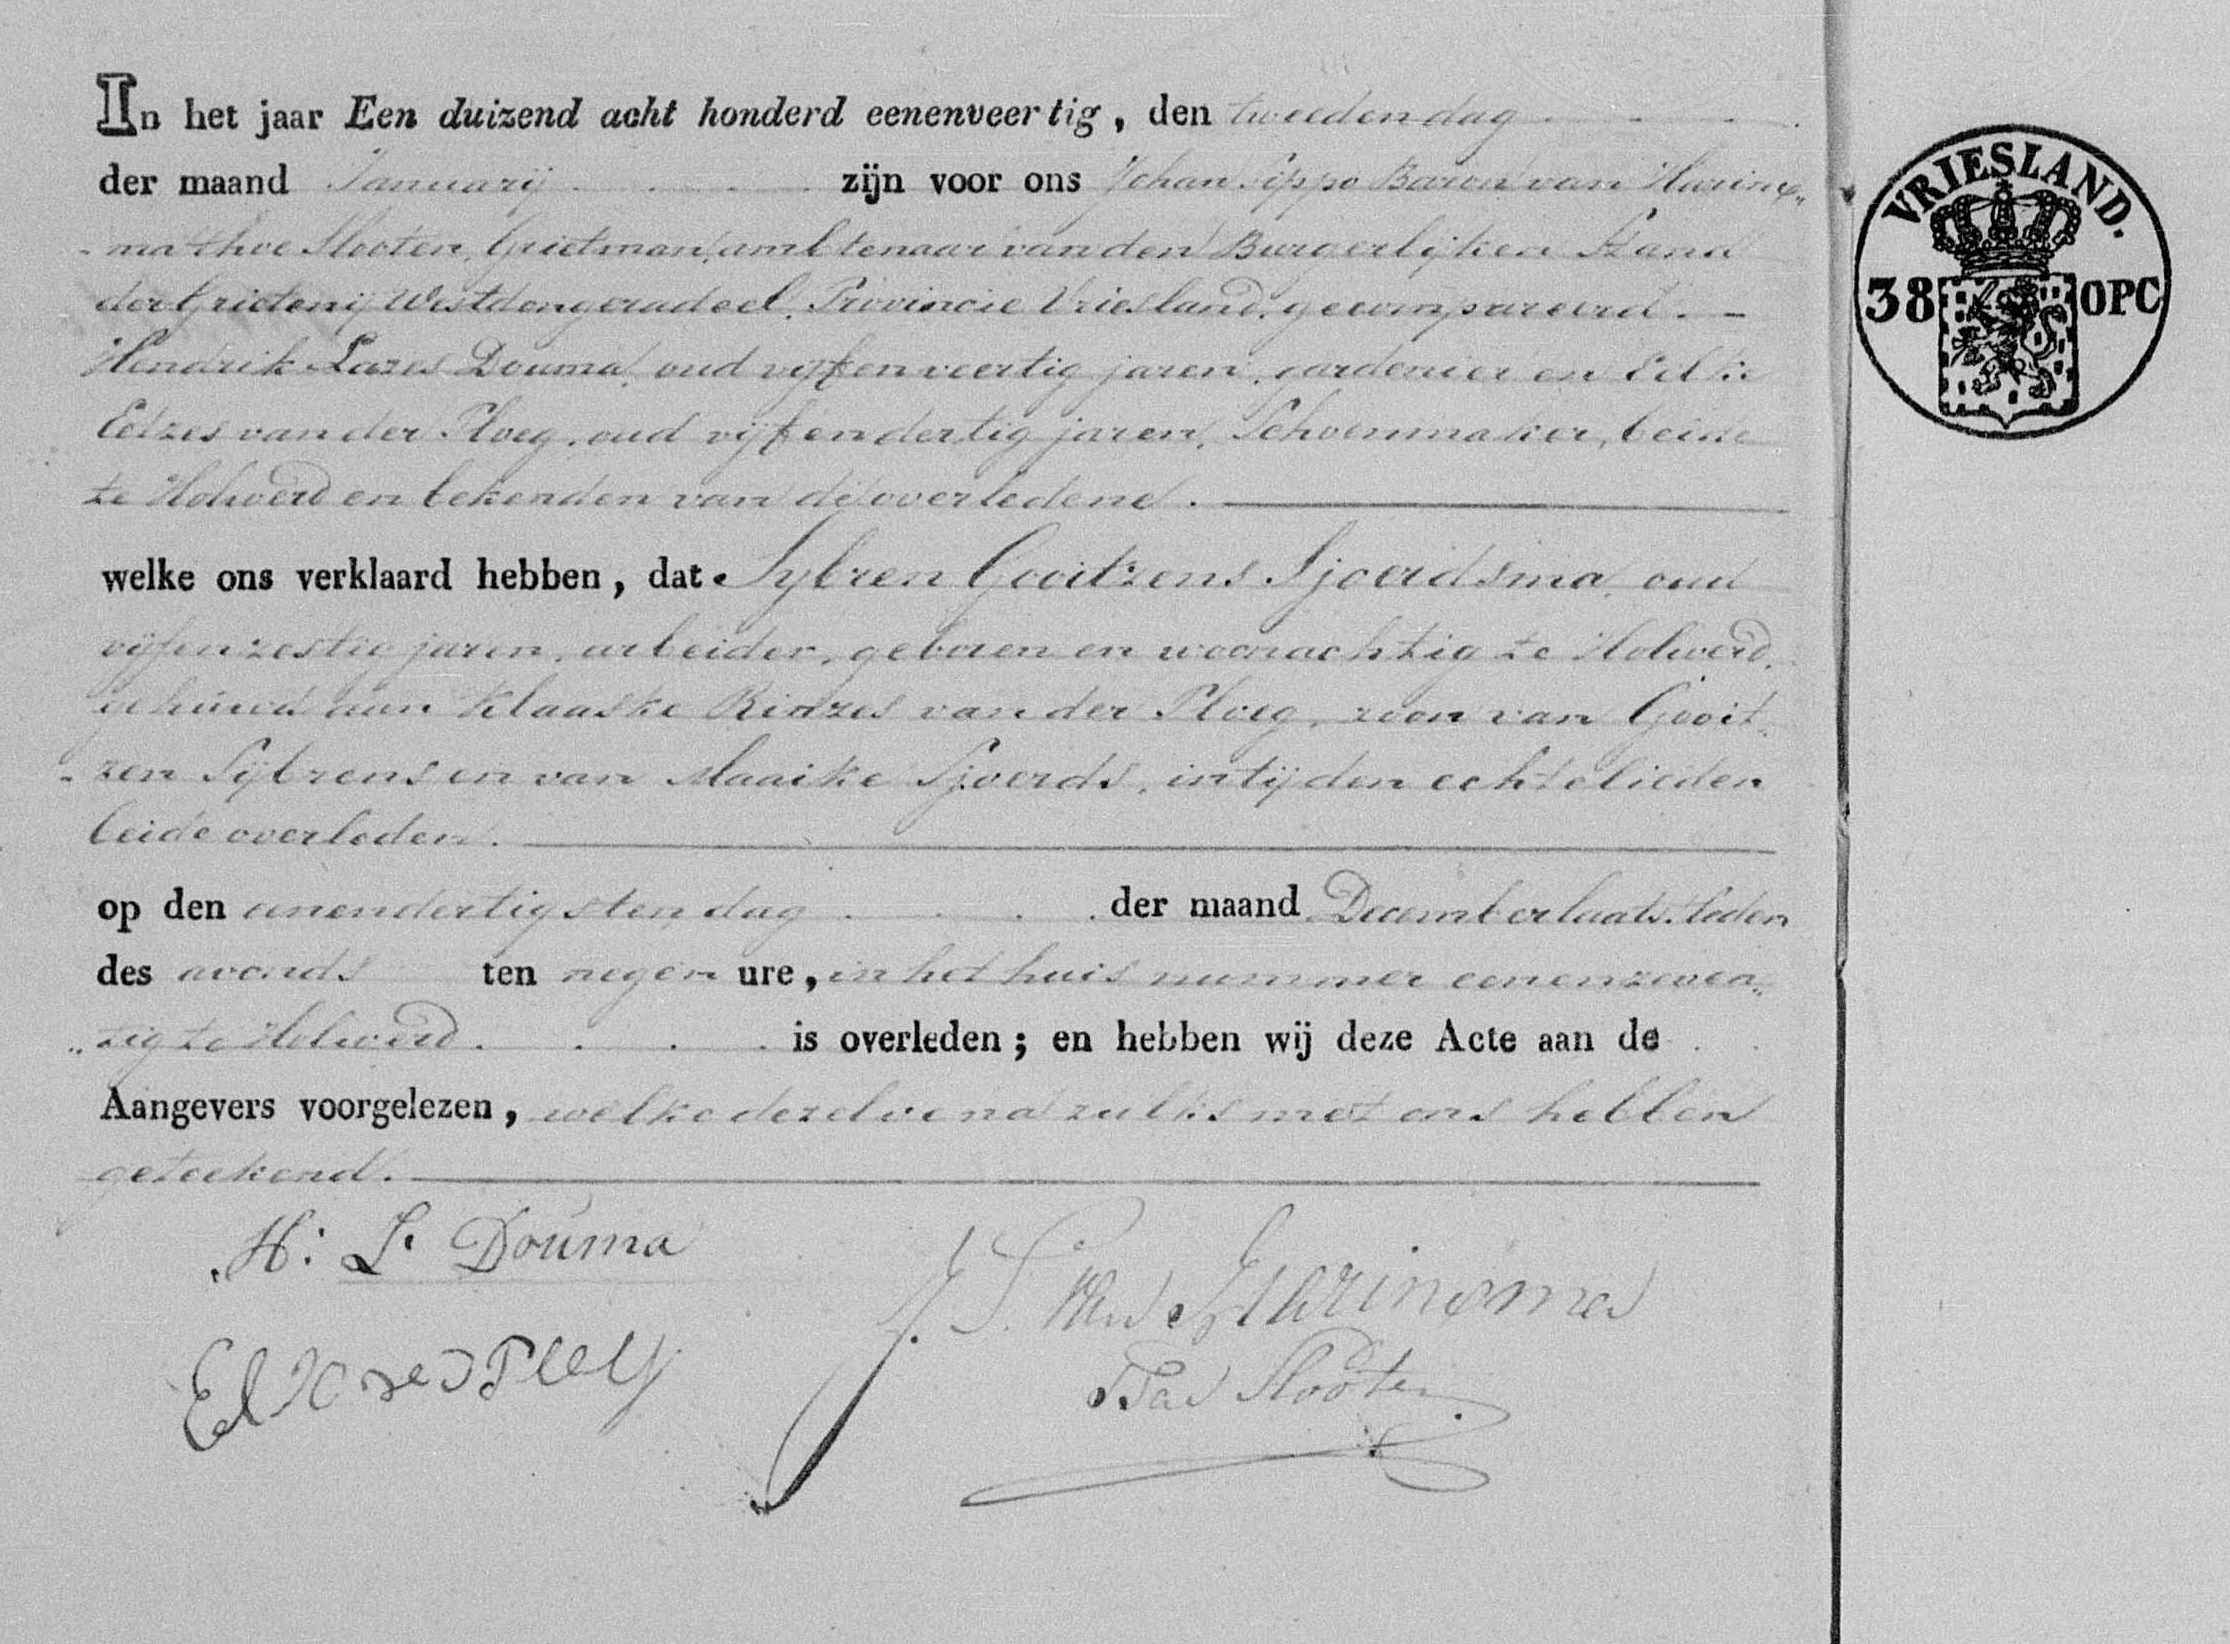 In het jaar Een duizend acht honderd eenenveertig, den tweeden dag
der maand Januarij zijn voor ons Johan Sippo Baron van Harinx„
„ma thoe Slooten, Grietman, ambtenaar van den Burgerlijken Stand
der Grietenij Westdongeradeel, Provincie Vriesland, gecompareerd. –
Hendrik Lazes Douma, oud vijfenveertig jaren, gardenier en Eelke
Edzes van der Ploeg, oud vijfendertig jaren, Schoenmaker, beide
te Holwerd en bekenden van de overledene.
welke ons verklaard hebben, dat Sybren Gooitzens Sjoerdsma, oud
vijfenzestig jaren, arbeider, geboren en woonachtig te Holwerd,
gehuwd aan Klaaske Rinzes van der Ploeg, zoon van Gooit„
„zen Sijbrens en van Maaike Sjoerds, in tijden echtelieden
beide overleden.
op den eenendertigsten dag der maand December laatstleden
des avonds ten negen ure, in het huis nummer eenenzeven„
„tig te Holwerd. is overleden; en hebben wij deze Acte aan de
Aangevers voorgelezen, welke dezelve na zulks met ons hebben
geteekend.
H: L. Douma
J. S. Van Harinxma
Thoe Slooten
VRIESLAND.
38 OPC